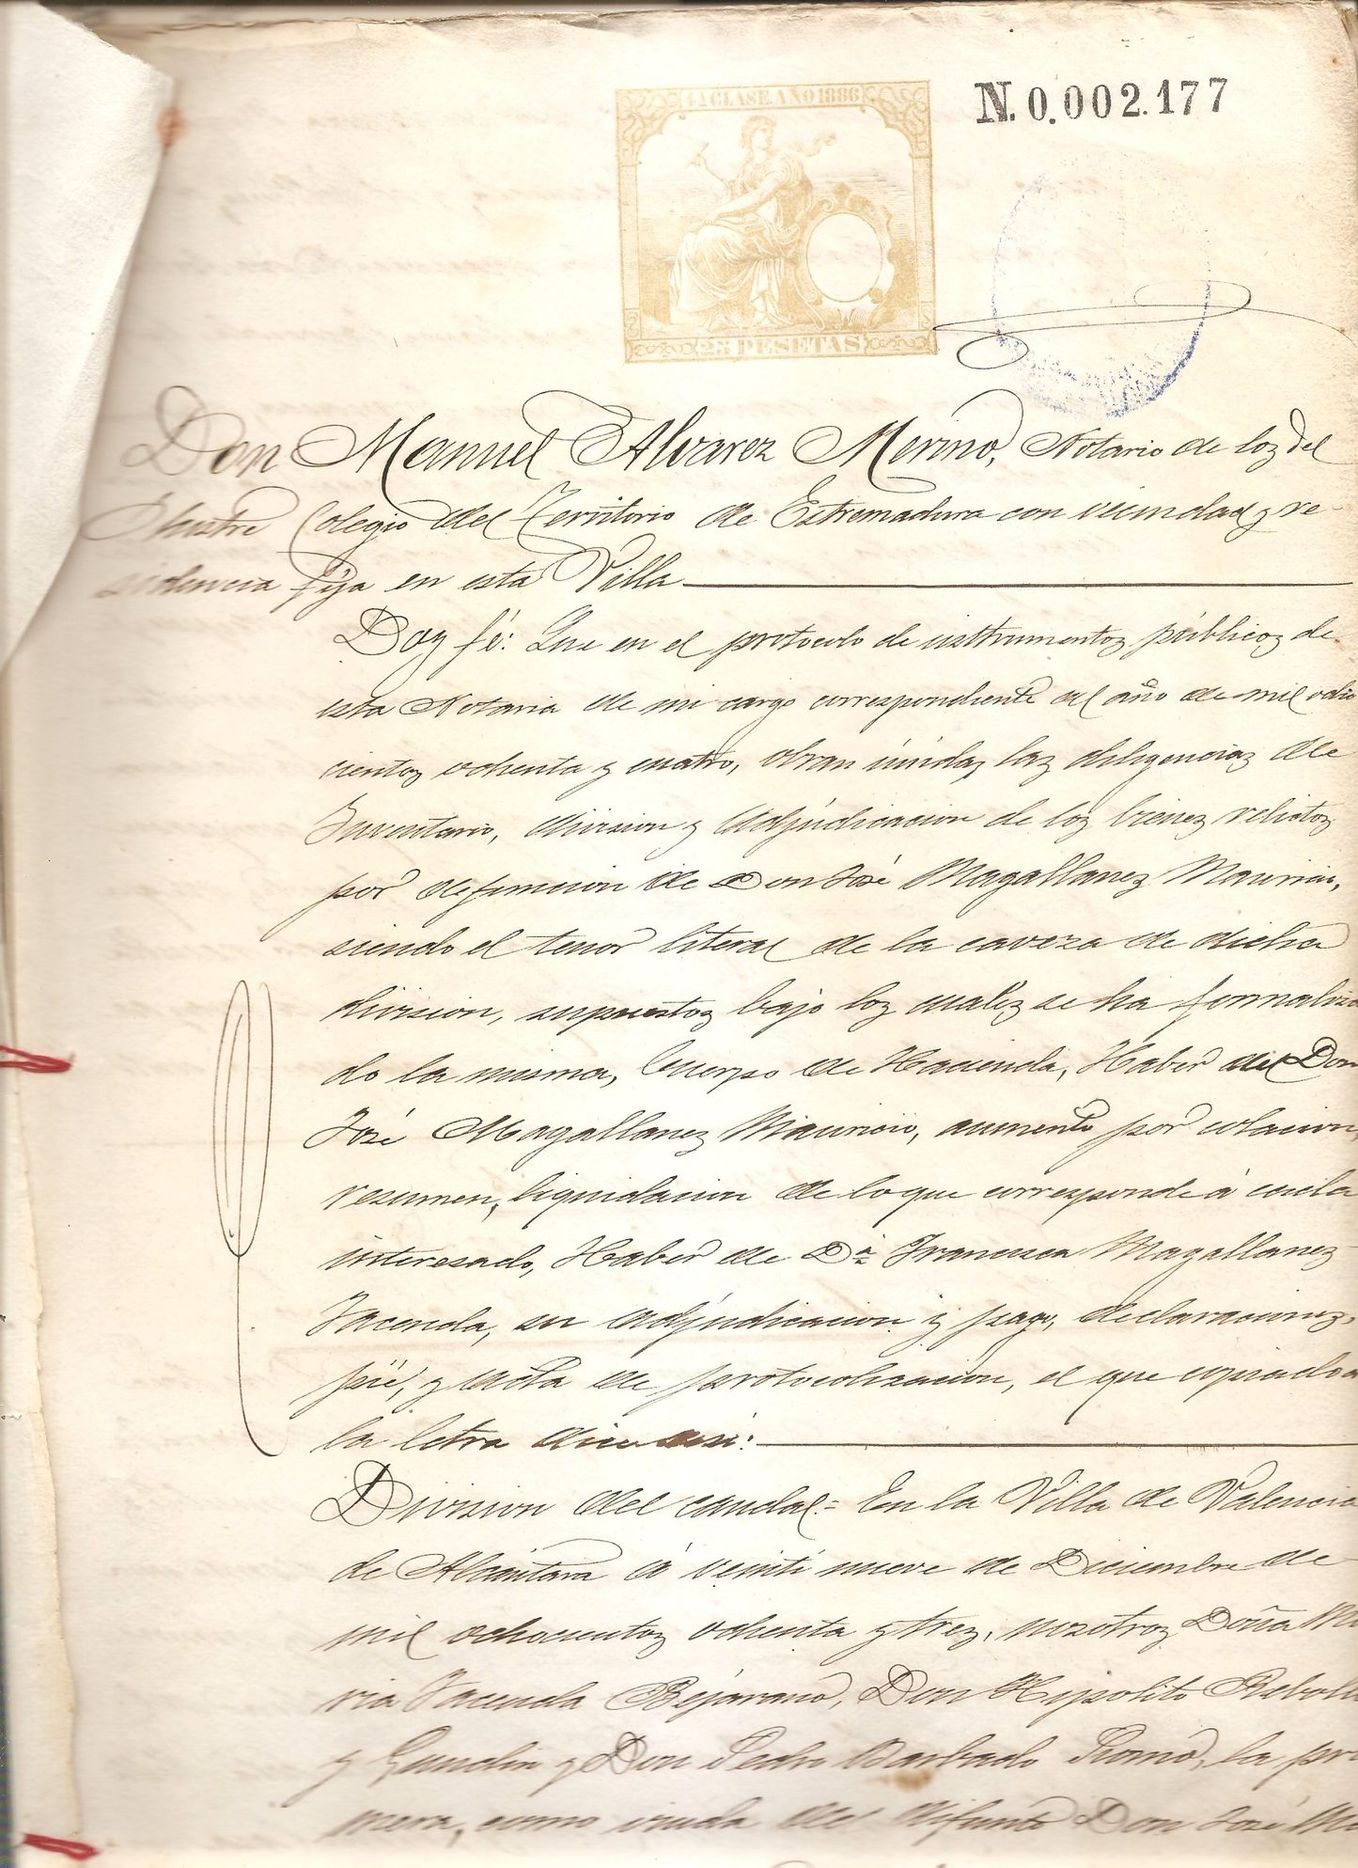 4ª CLASE. AÑO 1886
N. 0.002.177
25 PESETAS
Don Manuel Alvarez Merino, Notario de los del
Ilustre Colegio del Territorio de Estremadura con vecindad y re-
sidencia fija en esta Villa
Doy fé: Que en el protocolo de instrumentos públicos de
esta Notaria de mi cargo correspondiente al año de mil ocho
cientos ochenta y cuatro, obran únidas las diligencias de
Inventario, división y adjudicacion de los bienes relictos
por defuncion de Don José Magallanes Mauricio,
siendo el tenor literal de la caveza de dicha
division, supuestos bajo los cuales se ha formaliza
do la misma, Cuerpo de Hacienda, Haber del Don
José Magallanes Mauricio, aumento por colacion,
resumen, liquidacion de lo que corresponde á cada
interesado, Haber de Dª Francisca Magallanes
Jacenda, su adjudicacion y pago, declaraciones,
pié, y acta de protocolizacion, el que copiado a
la letra dice asi:
Division del caudal = En la Villa de Valencia
de Alcántara á veinti nueve de Diciembre de
mil ochocientos ochenta y tres, nosotros Doña Ma
ria Jacenda Bejarano, Don Hipolito Rebollo
y Gundin y Don Pedro Barbado Romo, la pri
mera, como viuda del difunto Don José Ma